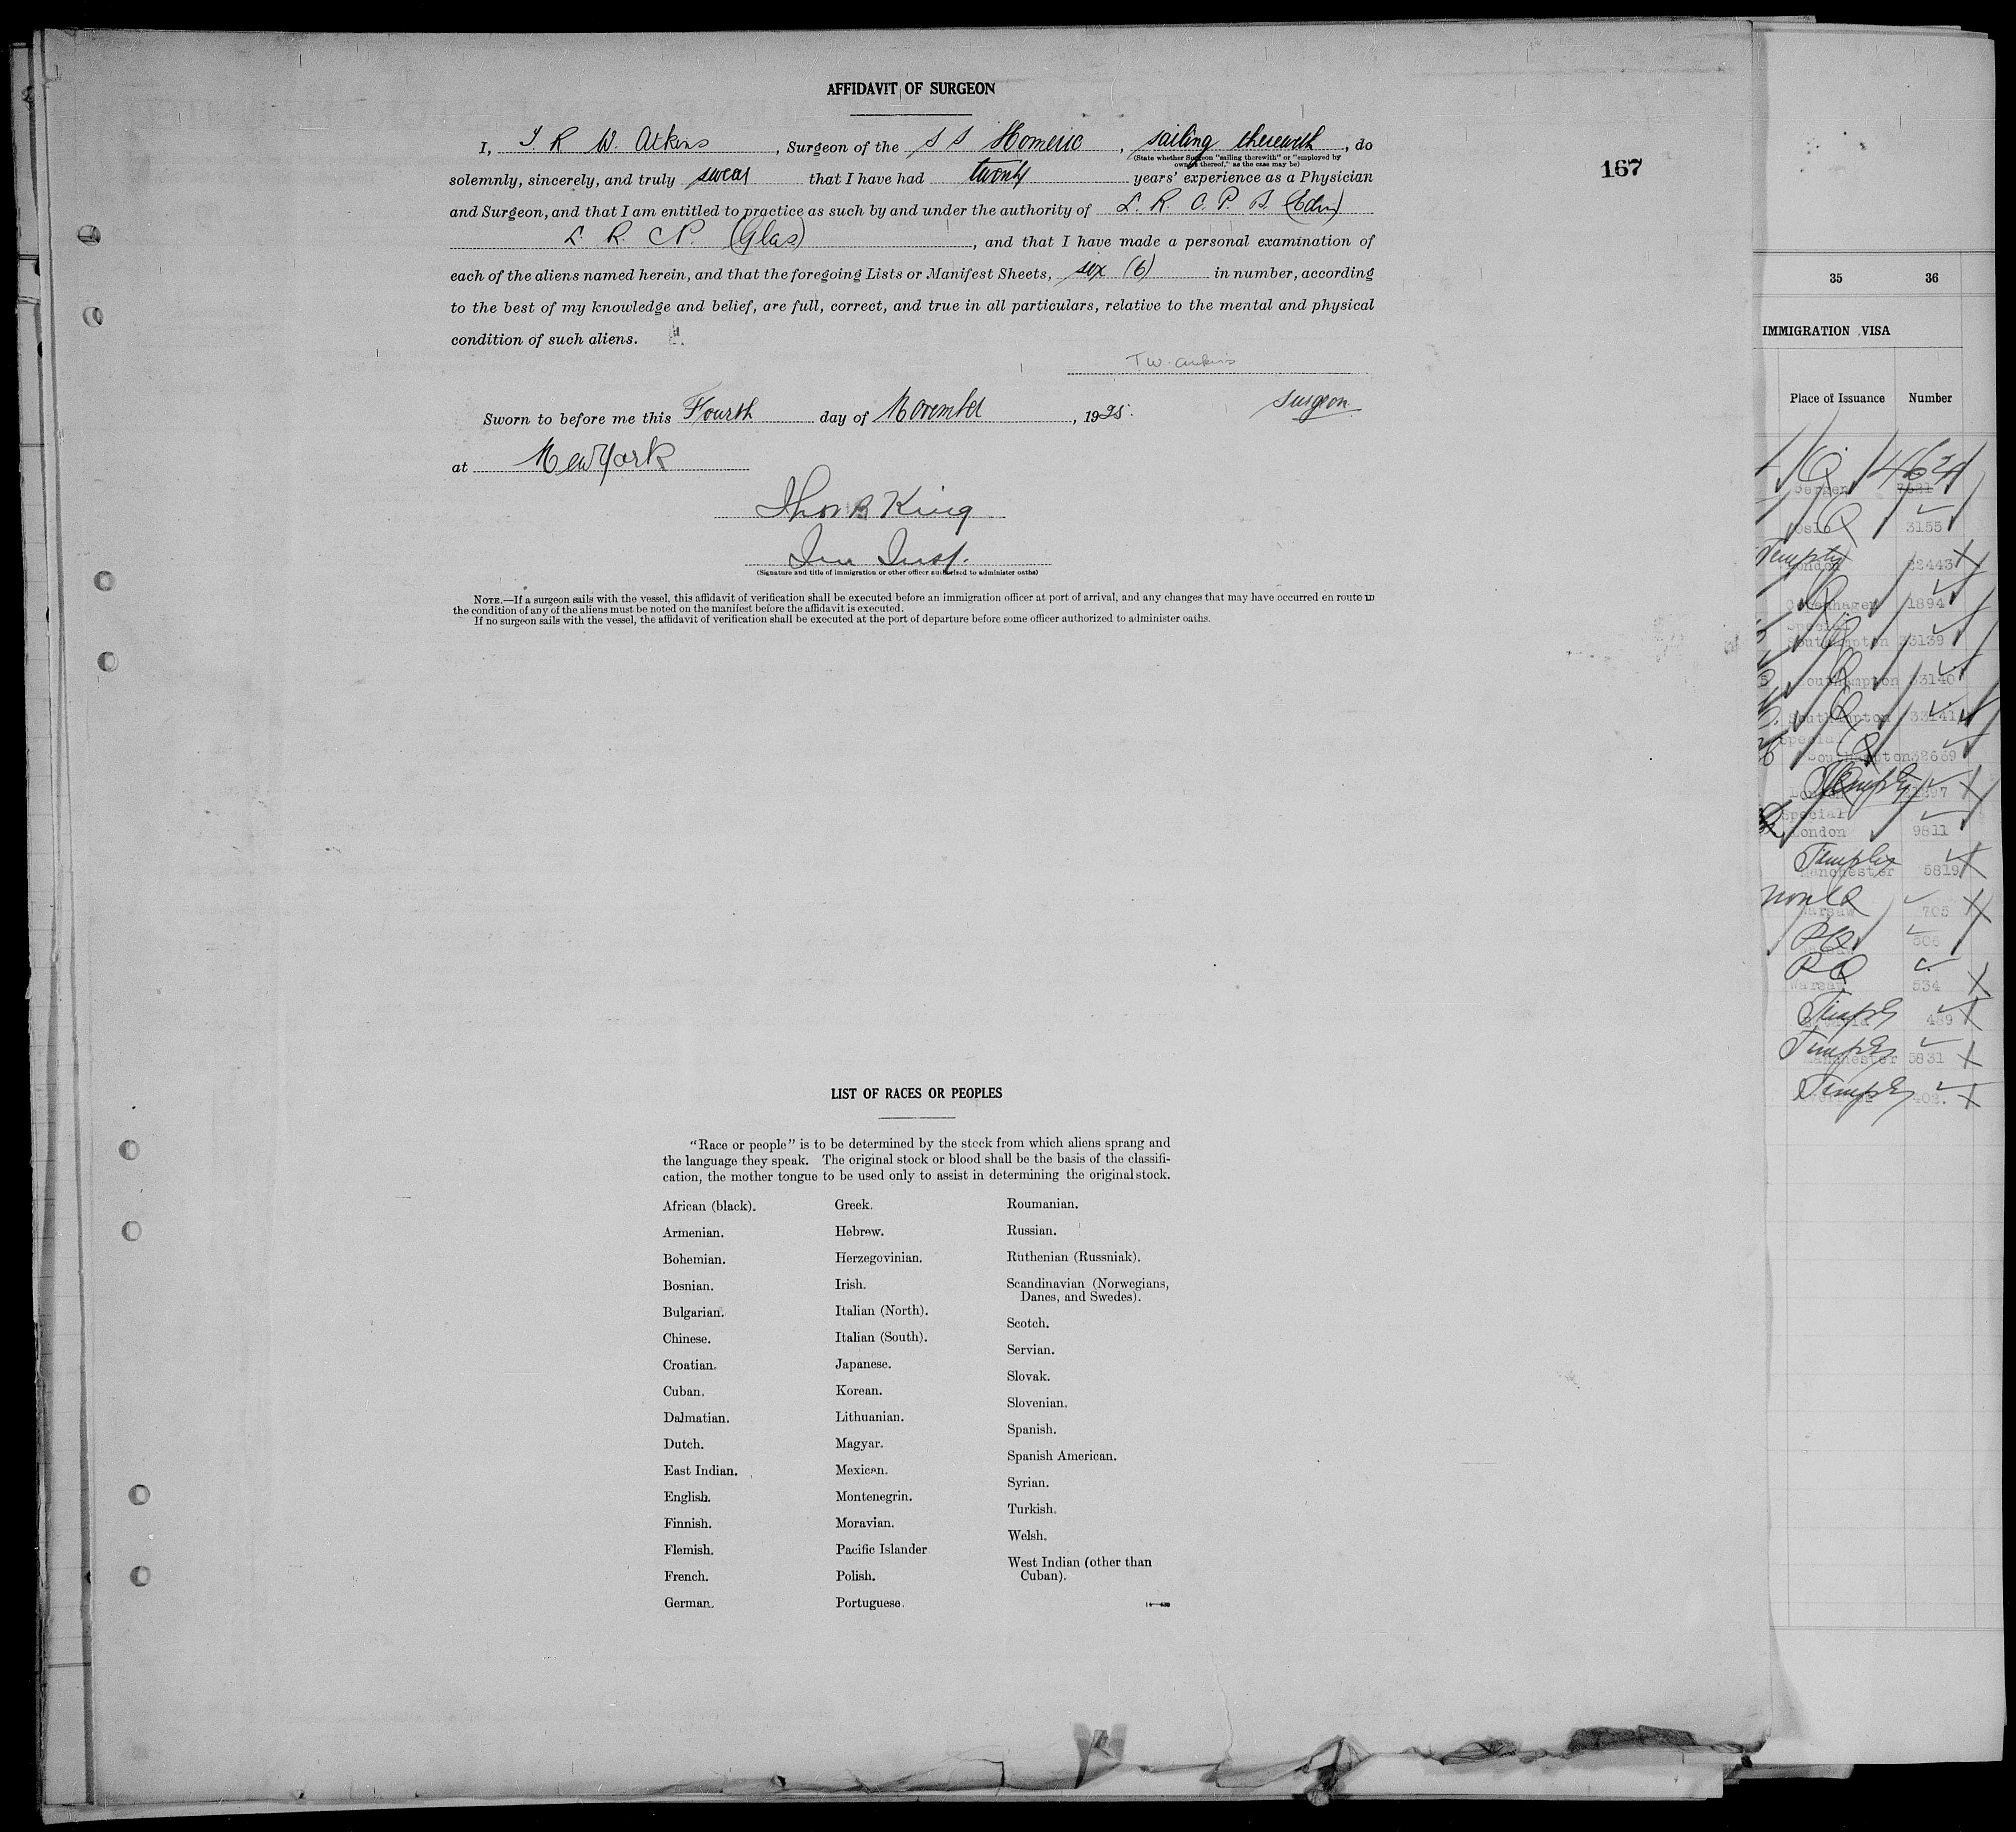 AFFIDAVIT OF SURGEON
I, T. R. W. Atkins, Surgeon of the S S Homeric, sailing therewith, do
(State whether Surgeon "sailing therewith" or "employed by
owners thereof," as the case may be)
167
solemnly, sincerely, and truly swear that I have had twenty years' experience as a Physician
and Surgeon, and that I am entitled to practice as such by and under the authority of L. R. C. P. S. (Edin)
L. R. (Glas), and that I have made a personal examination of
each of the aliens named herein, and that the foregoing Lists or Manifest Sheets, six (6) in number, according
to the best of my knowledge and belief, are full, correct, and true in all particulars, relative to the mental and physical
condition of such aliens.
T W. Atkins
Surgeon
Sworn to before me this Fourth day of November, 1925.
at New York
Thos B King
Im Insp.
(Signature and title of immigration or other officer authorized to administer oaths)
NOTE.—If a surgeon sails with the vessel, this affidavit of verification shall be executed before an immigration officer at port of arrival, and any changes that may have occurred en route in
the condition of any of the aliens must be noted on the manifest before the affidavit is executed.
If no surgeon sails with the vessel, the affidavit of verification shall be executed at the port of departure before some officer authorized to administer oaths.
LIST OF RACES OR PEOPLES
"Race or people" is to be determined by the stock from which aliens sprang and
the language they speak. The original stock or blood shall be the basis of the classifi-
cation, the mother tongue to be used only to assist in determining the original stock.
African (black).
Armenian.
Bohemian.
Bosnian.
Bulgarian.
Chinese.
Croatian.
Cuban.
Dalmatian.
Dutch.
East Indian.
English.
Finnish.
Flemish.
French.
German.
Greek.
Hebrew.
Herzegovinian.
Irish.
Italian (North).
Italian (South).
Japanese.
Korean.
Lithuanian.
Magyar.
Mexican.
Montenegrin.
Moravian.
Pacific Islander
Polish.
Portuguese.
Roumanian.
Russian.
Ruthenian (Russniak).
Scandinavian (Norwegians,
Danes, and Swedes).
Scotch.
Servian.
Slovak.
Slovenian.
Spanish.
Spanish American.
Syrian.
Turkish.
Welsh.
West Indian (other than
Cuban).
35 36
IMMIGRATION VISA
Place of Issuance Number
Q 4624
Bergen
Oslo Q 3155
Tempty London 32443
Copenhagen 1894
Special
Southampton 33139
Southampton 33140
Southampton 33141
Special
Southampton 32669
London
Special
London 9811
Manchester 5819
Warsaw 705
PQ
PQ
Warsaw 534
489
Manchester 5831
402.